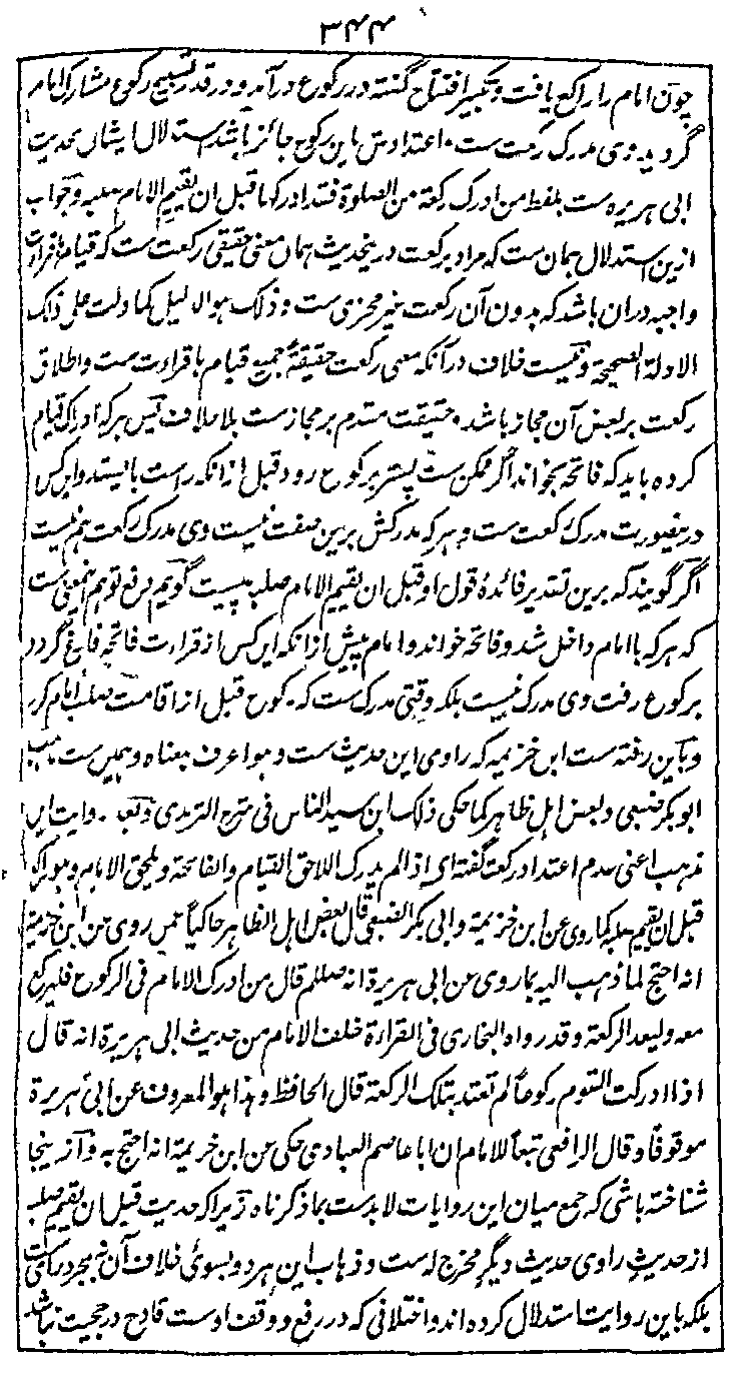 ۳۴۴
چون امام را راکع یافت و تکبیر افتتاح گفته در رکوع درآمد و در قدر تسبیح رکوع مشارک امام
گردید وی مدرک رکعت ست و اعتدادش باین رکوع جائز باشد استدلال ایشان بحدیث
ابی هریره ست بلفظ من ادرک رکعة من الصلوة فقد ادرکها قبل ان یقیم الامام صلبه و جواب
ازین استدلال همان ست که مراد برکعت درینحدیث همان معنی حقیقی رکعت ست که قیام و قراءت
واجبه دران باشد که بدون آن رکعت غیر مجزی ست و ذلک هو الدلیل کما دلت علی ذلک
الادلة الصحیحة و نیست خلاف در آنکه معنی رکعت حقیقةً جمیع قیام با قراءت ست و اطلاق
رکعت بر بعض آن مجاز باشد و حقیقت متقدم بر مجاز ست بلا خلاف پس هر که ادراک قیام
کرده باید که فاتحه بخواند اگر ممکن ست پستر برکوع رود قبل ازانکه راست بایستد و این کس
درینصورت مدرک رکعت ست و هر که مدرکش برین صفت نیست وی مدرک رکعت هم نیست
اگر گویند که برین تقدیر فائدهٔ قول او قبل ان یقیم الامام صلبه چیست گویم دفع توهم اینمعنی ست
که هر که با امام داخل شد و فاتحه خواند و امام پیش ازانکه این کس از قراءت فاتحه فارغ گردد
برکوع رفت وی مدرک نیست بلکه وقتی مدرک ست که رکوع قبل از اقامت صلب امام کرد
و باین رفته ست ابن خزیمه که راوی این حدیث ست و هو اعرف بمعناه و همین ست مذهب
ابوبکر ضبعی و بعض اهل ظاهر کما حکی ذلک ابن سید الناس فی شرح الترمذی و بعد روایت این
مذهب اعنی عدم اعتداد رکعت گفته ای اذا لم یدرک اللاحق القیام والفاتحة ویلحق الامام وهو راکع
قبل ان یقیم صلبه کما روی عن ابن خزیمة وابی بکر الضبعی قال بعض اهل الظاهر حاکیاً عمن روی عن ابن خزیمة
انه احتج لما ذهب الیه بما روی عن ابی هریرة انه صللم قال من ادرک الامام فی الرکوع فلیرکع
معه ولیعد الرکعة وقد رواه البخاری فی القراءة خلف الامام من حدیث ابی هریرة انه قال
اذا ادرکت القوم رکوعاً لم تعتد بتلک الرکعة قال الحافظ وهذا هو المعروف عن ابی هریرة
موقوفاً وقال الرافعی تبعاً للامام ان ابا عاصم العبادی حکی عن ابن خزیمة انه احتج به و ازینجا
شناخته باشی که جمع میان این روایات لا بدست بما ذکرناه زیراکه حدیث قبل ان یقیم صلبه
از حدیث راوی حدیث دیگر مخرج له ست و ذهاب این هر دو بسوی خلاف آن نه بمجرد رای ست
بلکه باین روایت استدلال کرده اند و اختلافی که در رفع و وقف اوست قادح در حجیت نباشد